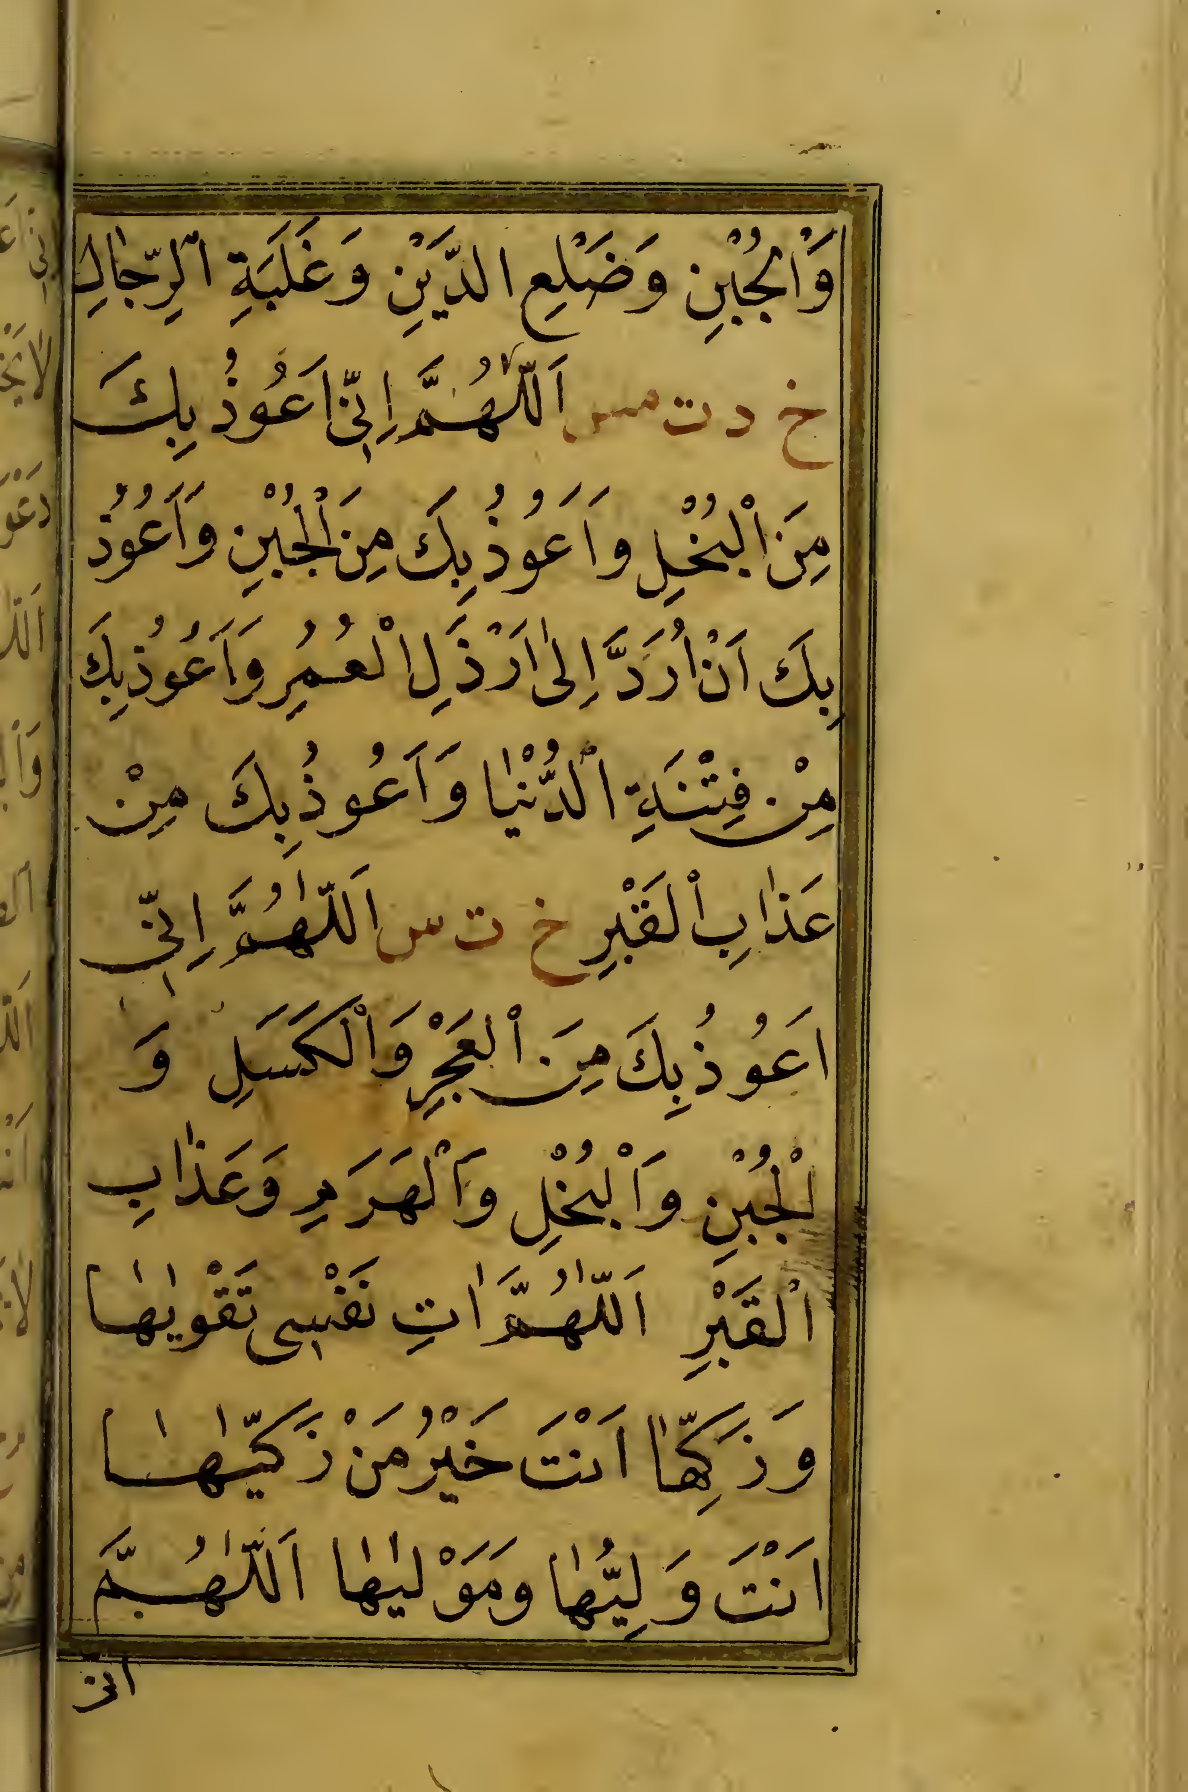 وَالْجُبْنِ وَضَلْعِ الدَّيْنِ وَغَلَبَةِ الرِّجَالِ
خ د ت مس اَللّٰهُمَّ اِنِّى اَعُوذُ بِكَ
مِنَ الْبُخْلِ وَاَعُوذُ بِكَ مِنَ الْجُبْنِ وَاَعُوذُ
بِكَ اَنْ اُرَدَّ اِلٰى اَرْذَلِ الْعُمُرِ وَاَعُوذُ بِكَ
مِنْ فِتْنَةِ الدُّنْيَا وَاَعُوذُ بِكَ مِنْ
عَذَابِ الْقَبْرِ خ ت س اَللّٰهُمَّ اِنِّى
اَعُوذُ بِكَ مِنَ الْعَجْزِ وَالْكَسَلِ وَ
الْجُبْنِ وَالْبُخْلِ وَالْهَرَمِ وَعَذَابِ
الْقَبْرِ اَللّٰهُمَّ اٰتِ نَفْسِى تَقْوٰيهَا
وَزَكِّهَا اَنْتَ خَيْرُ مَنْ زَكّٰيهَا
اَنْتَ وَلِيُّهَا وَمَوْلٰيهَا اَللّٰهُمَّ
انى